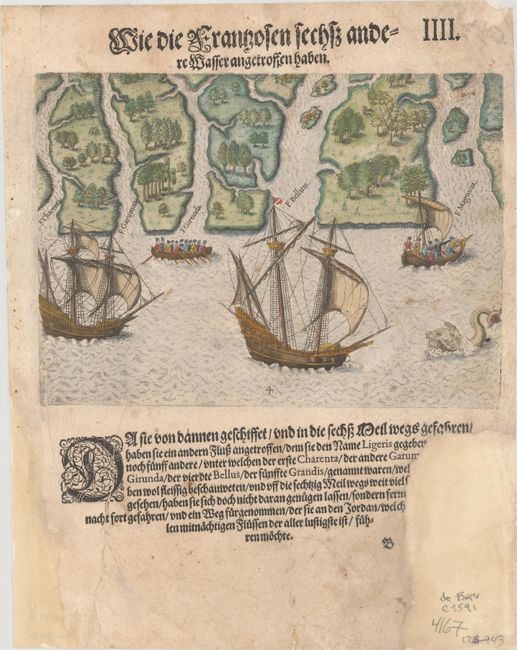 Wie die Frantzosen sechsz ande-
re Wasser angetroffen haben.
IIII.
F. Charenta
F. Garumna
F. Gironda
F. Bellum
F. Magnum
4
DA sie von dannen geschiffet / vnd in die sechsz Meil wegs gefahren /
haben sie ein andern Flusz angetroffen / dem sie den Name Ligeris gegeben
noch fünff andere / vnter welchen der erste Charenta / der andere Garum
Girunda / der vierdte Bellus / der fünffte Grandis / genannt waren / wel
ben wol fleissig beschauweten / vnd vff die sechtzig Meil wegs weit viel
gesehen / haben sie sich doch nicht daran genügen lassen / sondern ferm
nacht fort gefahren / vnd ein Weg fürgenommen / der sie an den Jordan / welch
len mitnächtigen Flüssen der aller lustigste ist / füh-
ren möchte.
B
de Bry
c 1591
4167